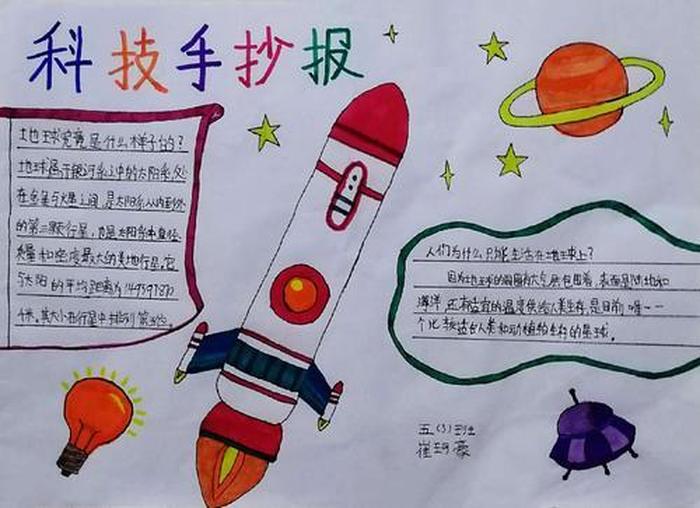 科技手抄报
地球究竟是什么样子的？
地球属于银河系中的太阳系，处
在金星与火星之间，是太阳系从内到外
的第三颗行星，也是太阳系中直径
质量和密度最大的类地行星。它
与太阳的平均距离为149597870
千米。其大小在行星中排列第五位。
人们为什么只能生活在地球上？
因为地球的周围有大气层包围着，表面是陆地和
海洋，还有适宜的温度供给人类生存，是目前唯一一
个比较适合人类和动植物生存的星球。
五（3）班
崔 豪